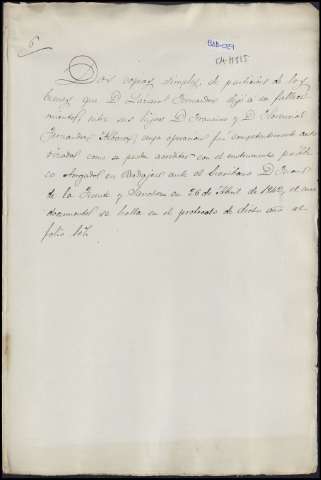 6
Dos copias simples de particion de los
bienes que D. Fernandez dejó a su falleci-
miento, entre sus hijos D. Francisco y D.
Fernandez Alvarez; cuya operacion fué competentemente auto-
rizada como se puede acreditar con el instrumento públi-
co otorgado en Badajoz ante el Escribano D.
de la Fuente y en 26 de Abril de 1842, el cual
documento se halla en el protocolo de dicho año al
folio